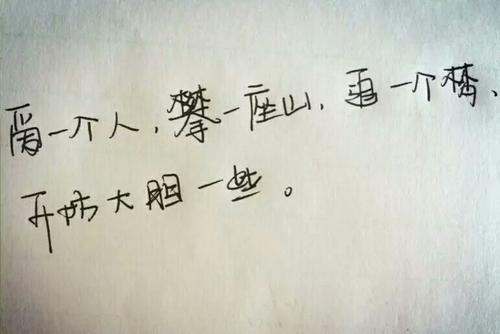 爱一个人,攀一座山,追一个梦、
不妨大胆一些。